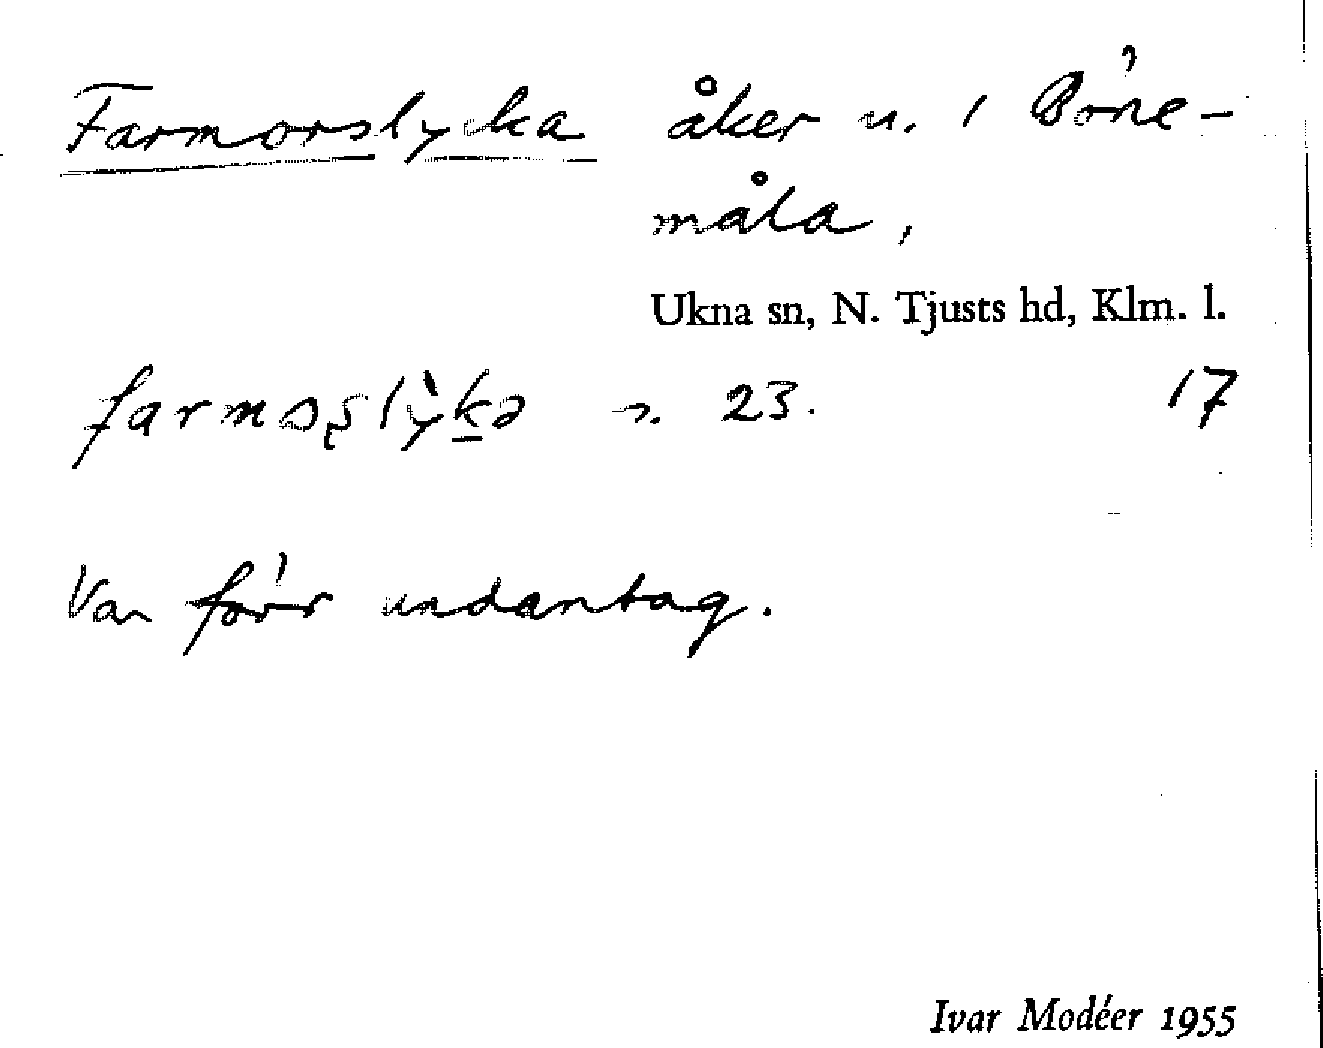 Farmorslycka åker u. 1 Böne-
måla,
Ukna sn, N. Tjusts hd, Klm. l.
23. 17
Var förr undantag.
Ivar Modéer 1955